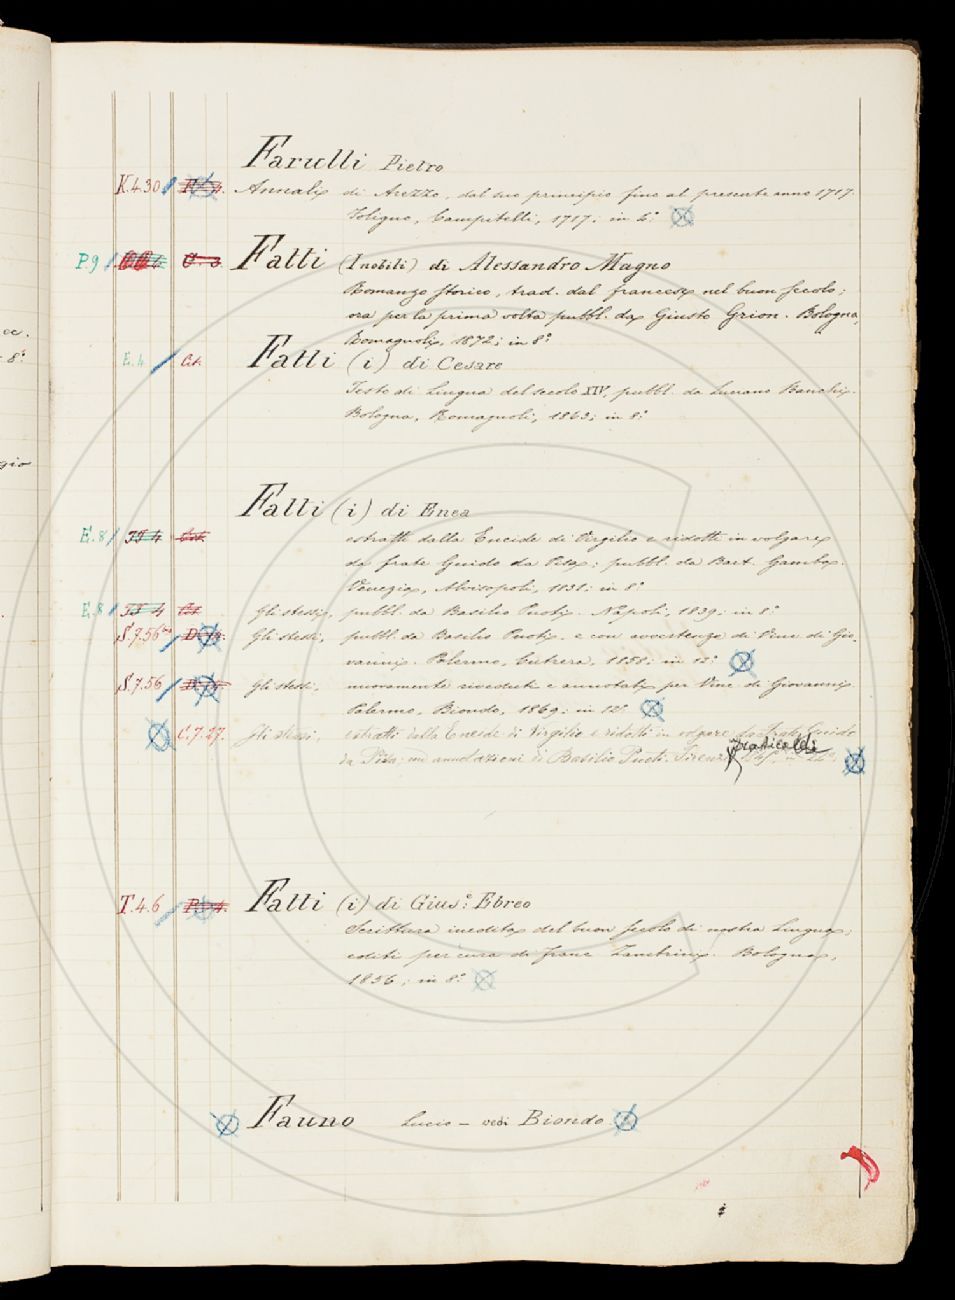 Farulli Pietro
K.4.30 Annali di Arezzo, dal suo principio fino al presente anno 1717.
Foligno, Campitelli, 1717; in 4.°
P.9 Fatti (Inobili) di Alessandro Magno
Romanzo storico, trad. dal francese nel buon secolo;
ora per la prima volta pubbl. da Giusto Grion. Bologna,
Romagnoli, 1872; in 8.°
E.4 Fatti (i) di Cesare
Testo di lingua del secolo XIV, pubbl. da Luciano Banchi.
Bologna, Romagnoli, 1863; in 8.°
Fatti (i) di Enea
E.8 estratti dalla Eneide di Virgilio e ridotti in volgare
da frate Guido da Pisa; pubbl. da Bart. Gamba.
Venezia, Alvisopoli, 1831; in 8.°
E.8 Gli stessi, pubbl. da Basilio Puoti. Napoli, 1839; in 8.°
S.7.56 Gli stessi, pubbl. da Basilio Puoti e con avvertenze di Vinc. di Gio-
vanni. Palermo, 1858; in 12.°
S.7.56 Gli stessi, nuovamente riveduti e annotati per Vinc. di Giovanni
Palermo, Biondo, 1869; in 12.°
C.7.27. Gli stessi, estratti dalla Eneide di Virgilio e ridotti in volgare da Frate Guido
da Pisa: con annotazioni di Basilio Puoti. Firenze
T.4.6 Fatti (i) di Gius.e Ebreo
Scrittura inedita del buon secolo di nostra lingua;
editi per cura di Franc. Zambrini. Bologna,
1856; in 8.°
Fauno Lucio – vedi Biondo